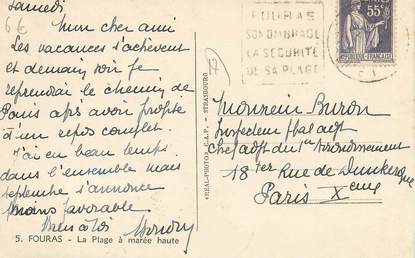 Samedi
6€
Mon cher ami
Les vacances s'achèvent
et demain soir je
reprendrai le chemin de
Paris après avoir profité
d'un repos complet.
J'ai eu beau temps
dans l'ensemble mais
septembre s'annonce
moins favorable
Bien à toi
5. FOURAS - La Plage à marée haute
REAL-PHOTO - C.A.P. - STRASBOURG
FOURAS
SON OMBRAGE
LA SÉCURITÉ
DE SA PLAGE
55c
REPUBLIQUE FRANCAISE
Monsieur Buron
Inspecteur
Chef 1er Arrondissement
18ter Rue de Dunkerque
Paris Xeme